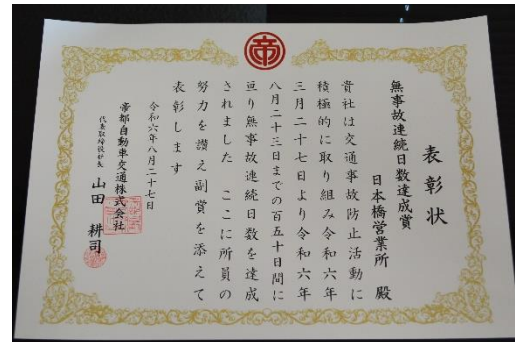 帝
表彰状
無事故連続日数達成賞
日本橋営業所 殿
貴社は交通事故防止活動に
積極的に取り組み令和六年
三月二十七日より令和六年
八月二十三日までの百五十日間に
亘り無事故連続日数を達成
されました ここに所員の
努力を讃え副賞を添えて
表彰します
令和六年八月二十七日
帝都自動車交通株式会社
代表取締役社長 山田 耕司